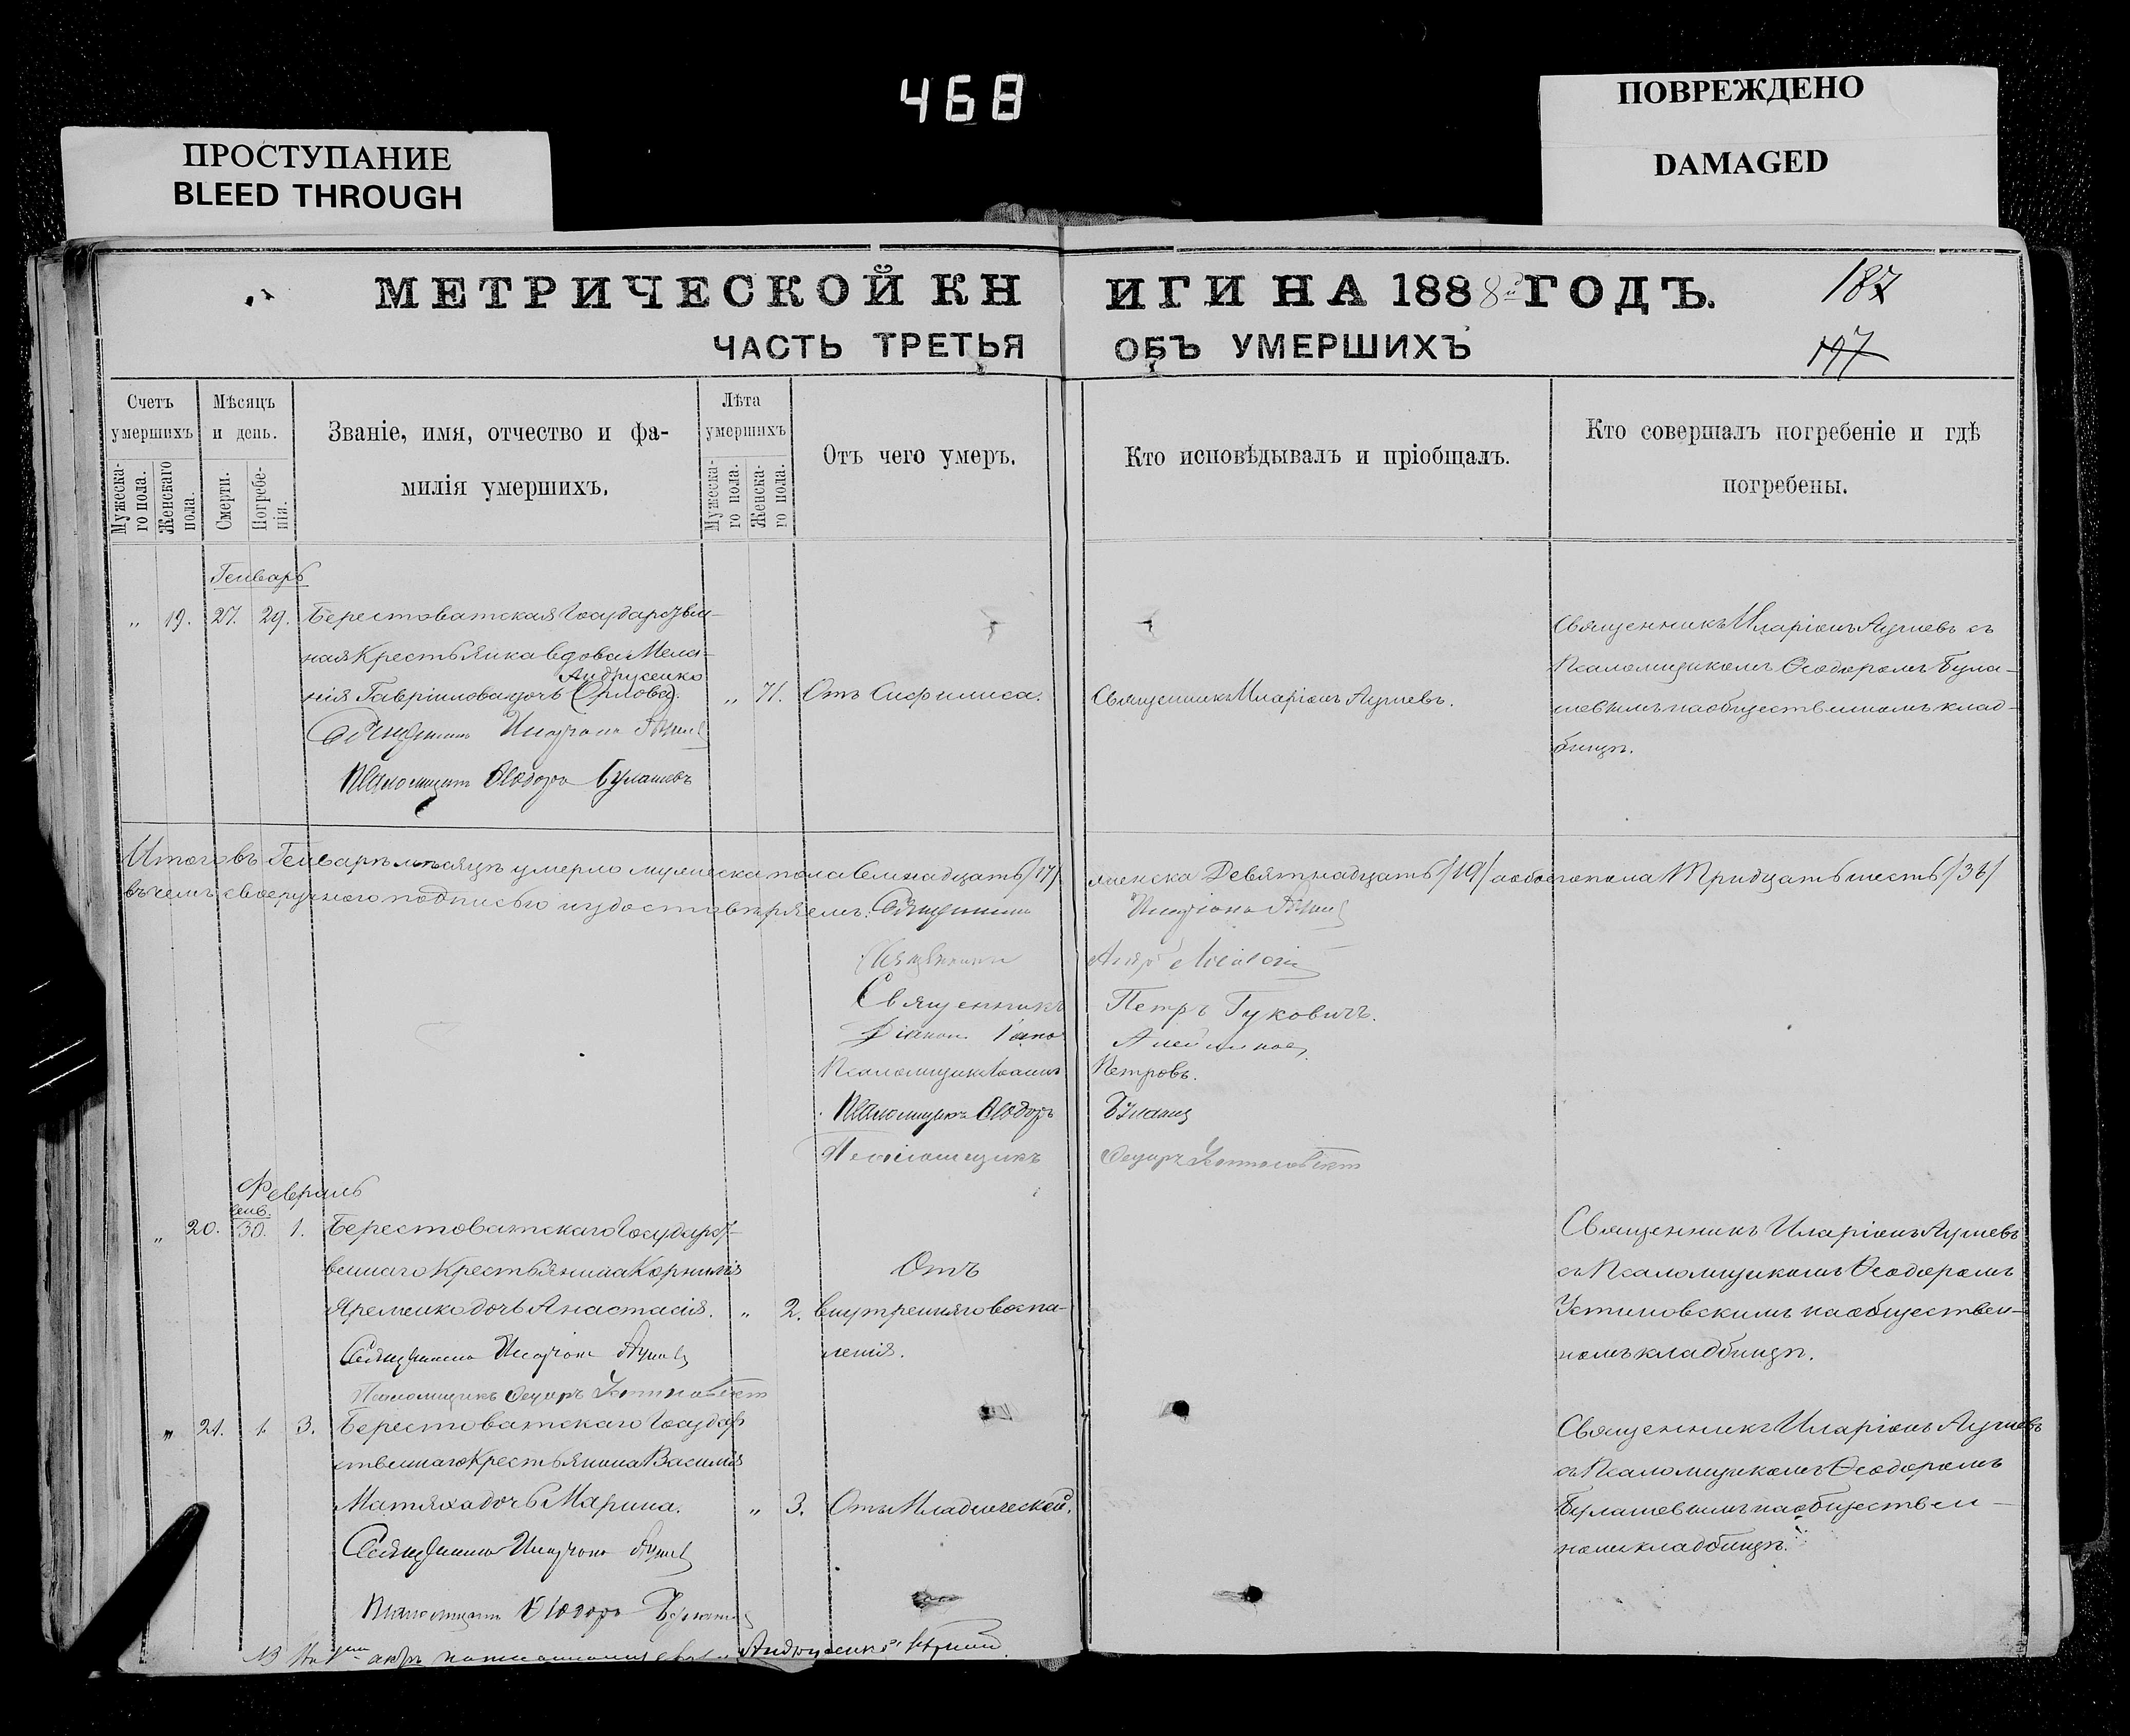 468
ПРОСТУПАНИЕ
BLEED THROUGH
ПОВРЕЖДЕНО
DAMAGED
МЕТРИЧЕСКОЙ КНИГИ НА 1888й ГОДЪ.
187
ЧАСТЬ ТРЕТЬЯ ОБЪ УМЕРШИХЪ
197
Счетъ умершихъ
Мужеска-го пола.
Женскаго пола.
Мѣсяцъ и день.
Смерти.
Погребе-нія.
Званіе, имя, отчество и фа-
милія умершихъ.
Лѣта умершихъ
Мужеска-го пола.
Женска-го пола.
Отъ чего умеръ.
Кто исповѣдывалъ и пріобщалъ.
Кто совершалъ погребеніе и гдѣ
погребены.
Генварь
„ 19. 27. 29. Берестоватская Государствен-
ная Крестьянка вдова Мела-
Андрусенко
нія Гавріилова дочь Орлова. „ 71. Отъ Сифилиса. Священникъ Иларіонъ
Священникъ Иларіонъ
Псаломщикъ Ѳеодоръ Булашевъ
Священникъ Иларіонъ съ
Псаломщикомъ Ѳеодоромъ Була-
шевымъ на общественномъ клад-
бищѣ.
Итого въ Генварѣ мѣсяцѣ умерло мужеска пола Семнадцать /17/ женска Девятнадцать /19/ а обоего пола Тридцать шесть /36/
въ чемъ своеручною подписью и удостовѣряемъ: Священникъ Иларіонъ
Священникъ
Священникъ Петръ Гуковичъ.
Діаконъ
Псаломщикъ Іоаннъ Петровъ.
Псаломщикъ Ѳеодоръ Булашевъ
Псаломщикъ Ѳеодоръ Устиновскій
Февраль
Генв.
„ 20. 30. 1. Берестоватскаго Государст-
веннаго Крестьянина Корнилія
Яременко дочь Анастасія. „ 2. Отъ
внутренняго воспа-
ленія.
Священникъ Иларіонъ
Псаломщикъ Ѳеодоръ Устиновскій
Священникъ Иларіонъ
съ Псаломщикомъ Ѳеодоромъ
Устиновскимъ на обществен-
номъ кладбищѣ.
„ 21. 1. 3. Берестоватскаго Государ
ственнаго Крестьянина Василія
Матяха дочь Марина. „ 3. Отъ Младенческой.
Священникъ Иларіонъ
Псаломщикъ Ѳеодоръ Булашевъ
Священникъ Иларіонъ
съ Псаломщикомъ Ѳеодоромъ
Булашевымъ на обществен-
номъ кладбищѣ.
„Андрусенко"